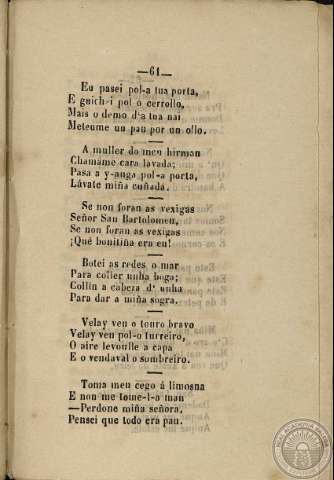 —61—
Eu pasei pol-a tua porta,
E guich-i pol o cerrollo,
Mais o demo d'a tua nai
Meteume un pau por un ollo.
A muller do meu hirman
Chamame cara lavada;
Pasa a y-auga pol-a porta,
Lávate miña cuñada.
Se non foran as vexigas
Señor San Bartolomeu,
Se non foran as vexigas
¡Qué bonitiña era eu!
Botei as redes o mar
Para coller unha boga;
Collin a cabeza d' unha
Para dar a miña sogra.
Velay ven o touro bravo
Velay ven pol-o turreiro,
O aire levoulle a capa
E o vendaval o sombreiro.
Toma meu cego á limosna
E non me tome-l-a man
—Perdone miña señora,
Pensei que todo era pau.
REAL ACADEMIA GALEGA